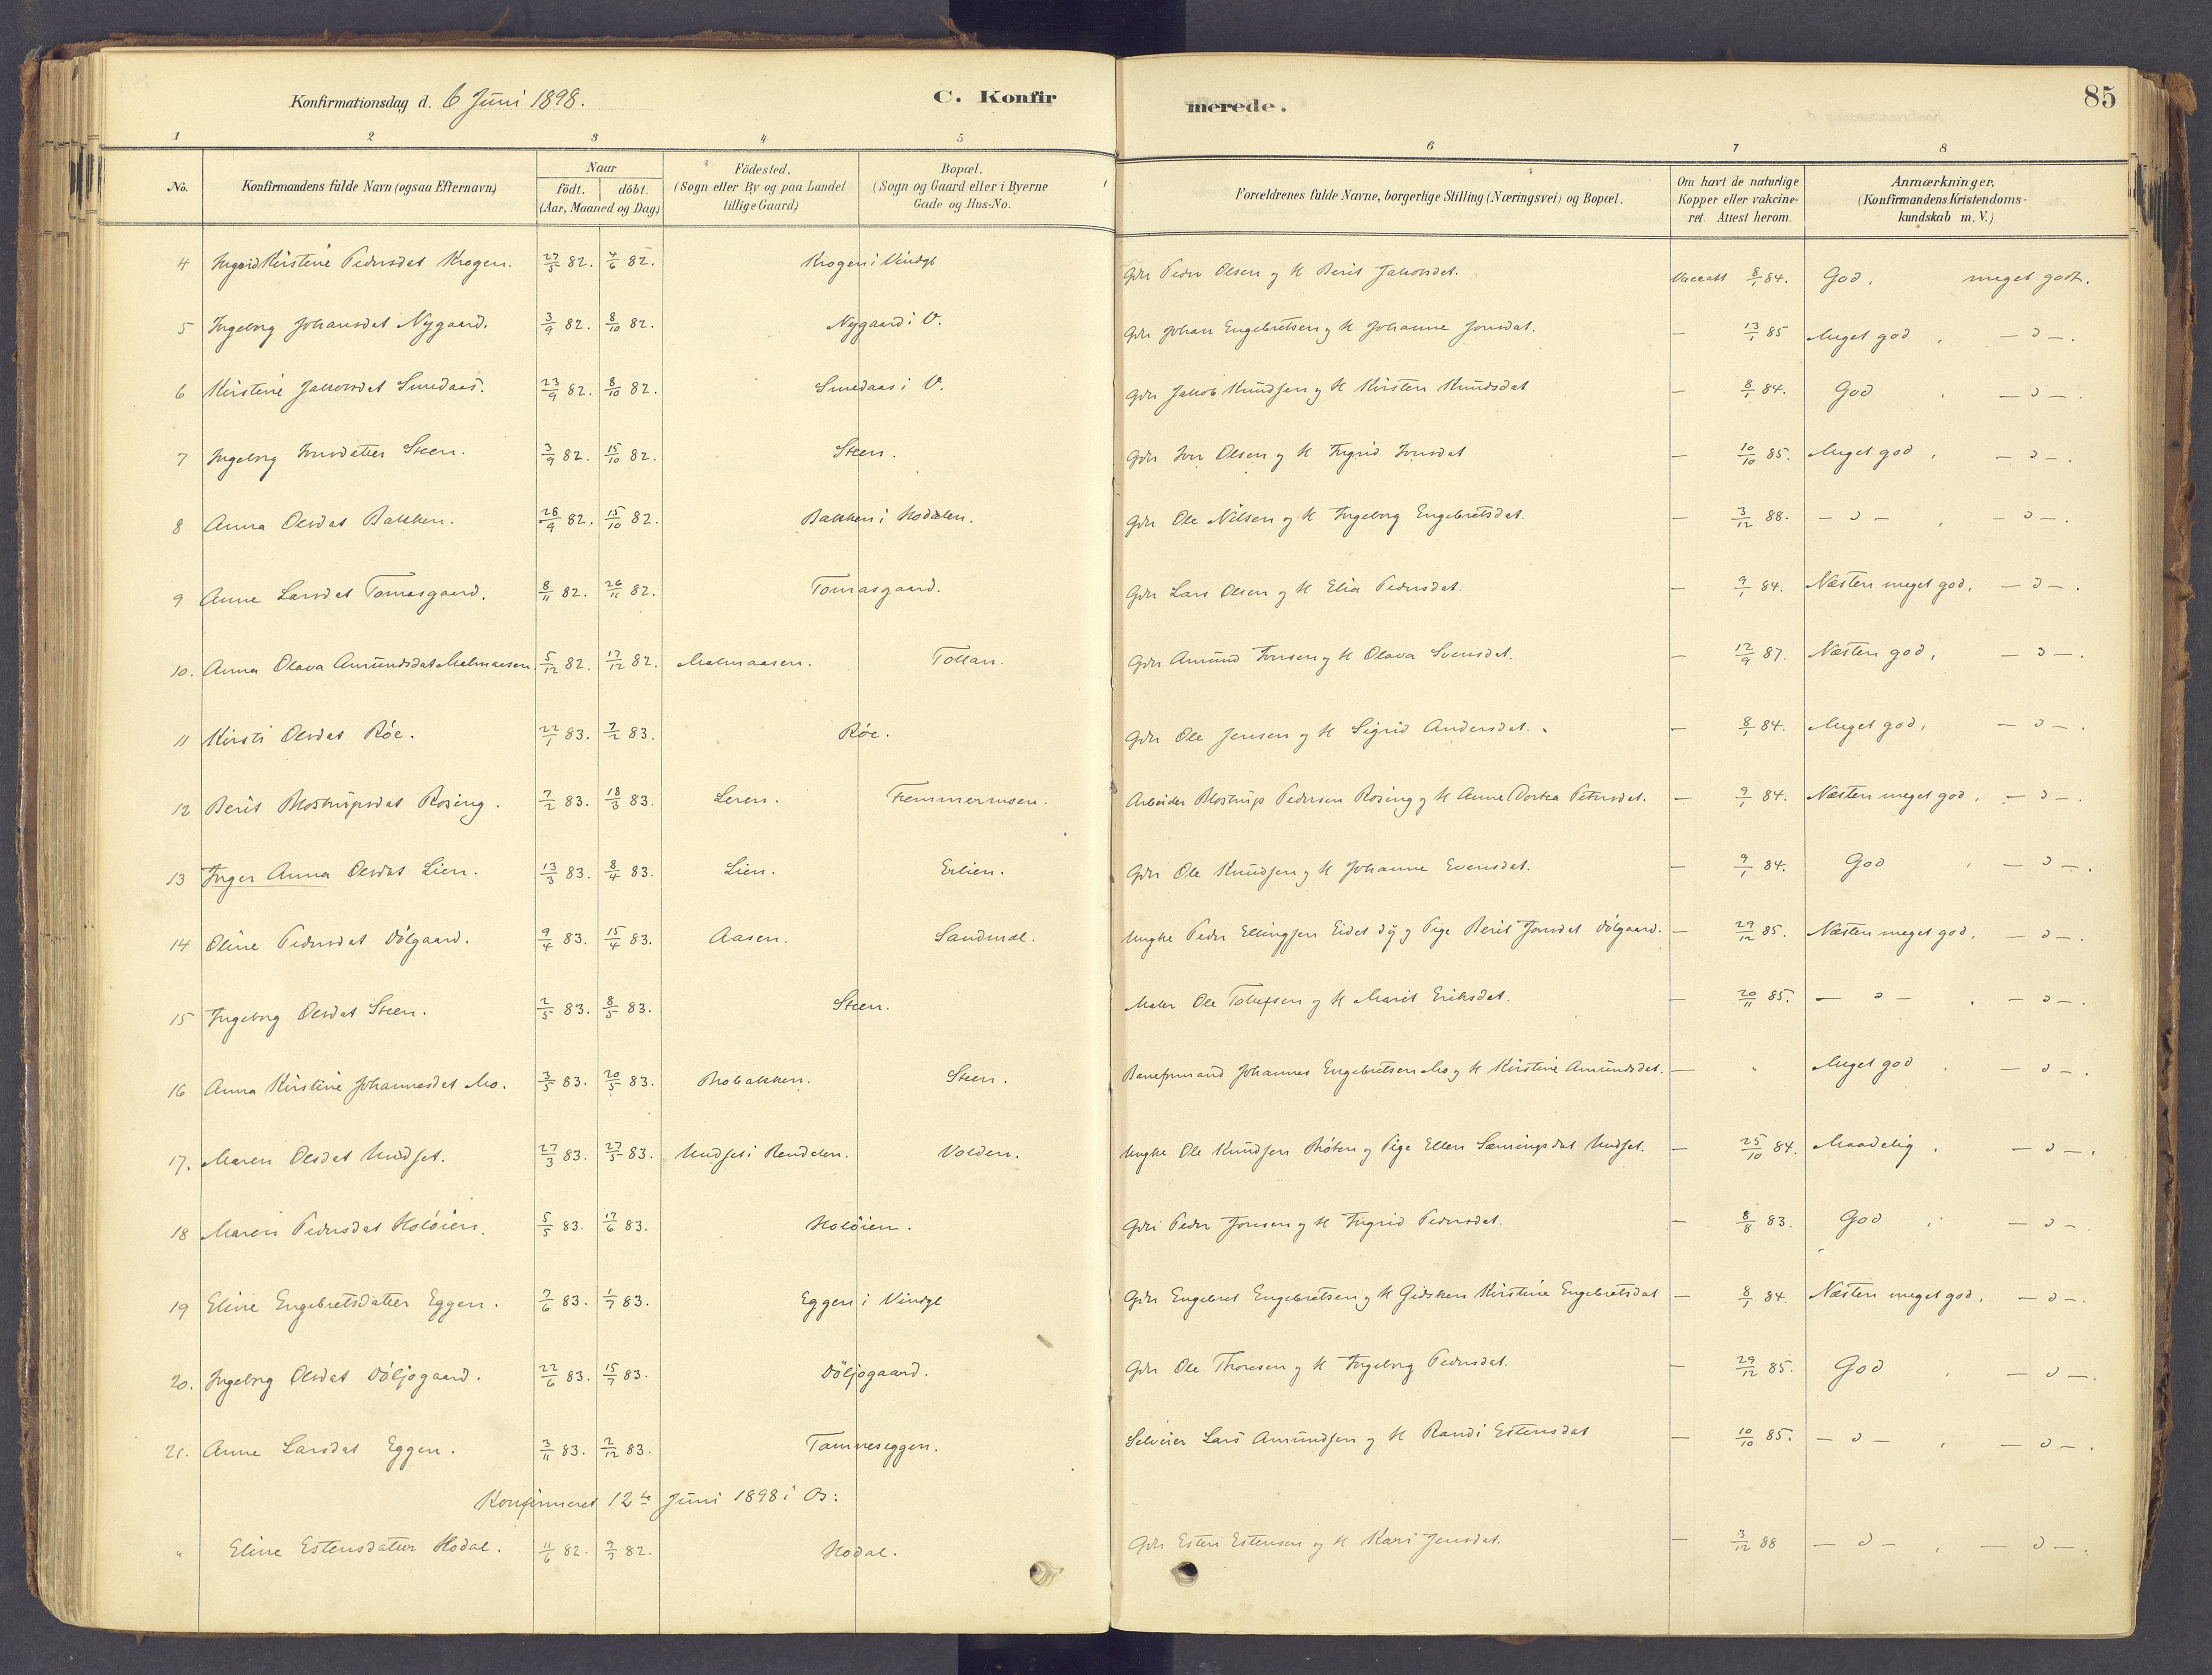 Konfirmationsdag d. 6 Juni 1898.
C. Konfirmerede.
85
1 2 3 4 5 6 7 8
No.
Konfirmandens fulde Navn (ogsaa Efternavn)
Naar
födt. döbt.
(Aar, Maaned og Dag)
Födested.
(Sogn eller By og paa Landet
tillige Gaard)
Bopæl.
(Sogn og Gaard eller i Byerne
Gade og Hus-No.
Forældrenes fulde Navne, borgerlige Stilling (Næringsvei) og Bopæl.
Om havt de naturlige
Kopper eller vakcine-
ret. Attest herom.
Anmærkninger,
(Konfirmandens Kristendoms-
kundskab m. V.)
4 Ingrid Kirstine Pedersdat Krogen. 27/5 82. 4/6 82. Krogen i Vingl Gdr Peder Olsen og H Berit Jakobsdat. Vaccatt 8/1 84. God, meget godt.
5 Ingeborg Johansdat Nygaard. 3/9 82. 8/10 82. Nygaard i V. Gdr Johan Engebretsen og H Johanne Jonsdat. — 13/1 85 Meget god, — " —.
6 Kirstine Jakobsdat Smedaas. 23/9 82. 8/10 82. Smedaas i V. Gdr Jakob Knudsen og H Kirsten Knudsdat — 8/1 84. God, — " —.
7 Ingeborg Iversdatter Steen. 3/9 82. 15/10 82. Steen. Gdr Iver Olsen og H Ingrid Iversdat — 10/10 85. Meget god, — " —.
8 Anna Olsdat Bakken. 28/9 82. 15/10 82. Bakken i Hodalen. Gdr Ole Nilsen og H Ingeborg Engebretsdat. — 3/12 88. — " —, — " —.
9 Anne Larsdat Tomasgaard. 8/11 82. 26/11 82. Tomasgaard. Gdr Lars Olsen og H Elia Pedersdat. — 9/1 84. Næsten meget god, — " —.
10. Anna Olava Amundsdat Malmaasen. 5/12 82. 17/12 82. Malmaasen. Tollan. Gdr Amund Iversen og H Olava Svensdat. — 12/9 87. Næsten god, — " —.
11 Kirsti Olsdat Röe. 22/1 83. 7/2 83. Röe. Gdr Ole Jensen og H Sigrid Andersdat. — 8/1 84. Meget god, — " —.
12 Berit Mostrupsdat Rosing. 7/2 83. 18/3 83. Leren. Femmermoen. Arbeider Mostrup Pedersen Rosing og H Anne Dortea Petersdat. — 9/1 84. Næsten meget god, — " —.
13 Inger Anna Olsdat Lien. 13/3 83. 8/4 83. Lien. Erlien. Gdr Ole Knudsen og H Johanne Evensdat. — 9/1 84. God, — " —.
14 Oline Pedersdat Dölgaard. 9/4 83. 15/4 83. Aasen. Sandmæl. Ungke Peder Ellingsen Eidet og Pige Berit Jonsdat Dölgaard. — 29/12 85. Næsten meget god, — " —.
15 Ingeborg Olsdat Steen. 2/5 83. 8/5 83. Steen. Maler Ole Tollefsen og H Marit Eriksdat. — 20/11 85. — " —, — " —.
16 Anna Kirstine Johannesdat Mo. 3/5 83. 20/5 83. Mobakken. Steen. Baneformand Johannes Engebretsen Mo og H Kirstine Amundsdat. — " Meget god, — " —.
17. Maren Olsdat Undset. 27/3 83. 27/5 83. Undset i Rendalen. Volden. Ungke Ole Knudsen og Pige Ellen Sæmingsdat Undset. — 25/10 84. Maadelig, — " —.
18 Maren Pedersdat Holöien. 5/5 83. 17/6 83. Holöien. Gdr Peder Jonsen og H Ingrid Pedersdat. — 8/8 83. God, — " —.
19 Eline Engebretsdatter Eggen. 7/6 83. 1/7 83. Eggen i Vingl Gdr Engebret Engebretsen og H Gidsken Kirstine Engebretsdat — 8/1 84. Næsten meget god, — " —.
20. Ingeborg Olsdat Döljogaard. 22/6 83. 15/7 83. Döljogaard. Gdr Ole Thoresen og H Ingeborg Pedersdat. — 29/12 85. God, — " —.
21. Anne Larsdat Eggen. 3/11 83. 2/12 83. Tamneseggen. Selveier Lars Amundsen og H Randi Estensdat — 10/10 85. — " —, — " —.
Konfirmeret 12te Juni 1898 i Os:
" Eline Estensdatter Hodal. 11/6 82. 9/7 82. Hodal. Gdr Esten Estensen og H Kari Jensdat. — 3/12 88 — " —, — " —.